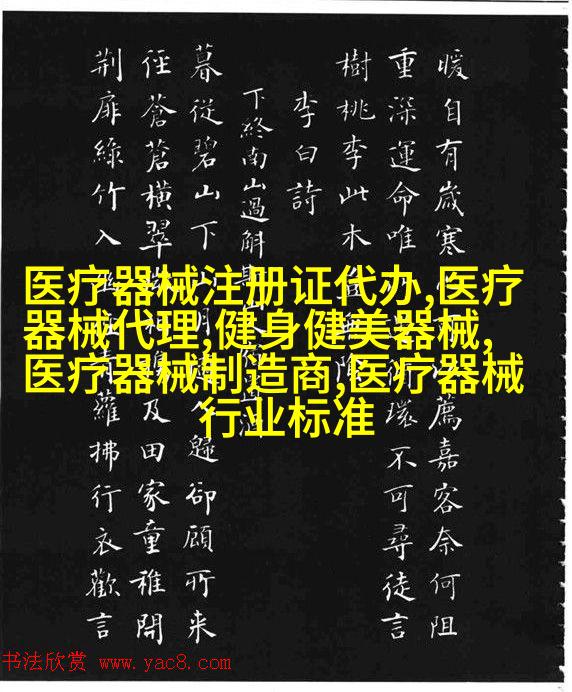 暖自有歲寒薦嘉客奈何阻
重深運命唯環不可尋徒言
樹桃李此木
李白詩
下終南山過斛
暮從碧山下歸卻顧所来
徑蒼蒼橫翠及田家童稚開
荆扉綠竹入青蘿拂行衣歡言
医疗器械注册证代办,医疗
器械代理,健身健美器械,
医疗器械制造商,医疗器械
行业标准
书法欣赏 www.yac8.com